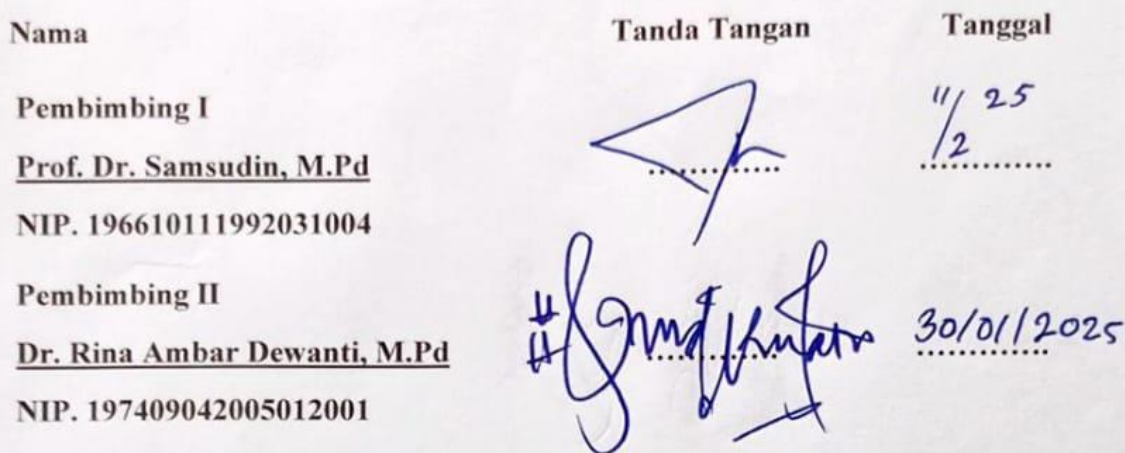 Nama Tanda Tangan Tanggal
Pembimbing I
11/2 25
Prof. Dr. Samsudin, M.Pd ............. .............
NIP. 196610111992031004
Pembimbing II
Dr. Rina Ambar Dewanti, M.Pd ............. 30/01/2025
NIP. 197409042005012001